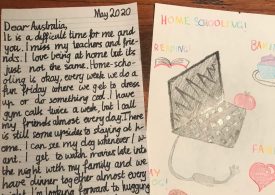 May 2020
Dear Australia,
It is a difficult time for me and
you. I miss my teachers and frie-
nds. I love being at home but its
just not the same. Home-scho-
oling is okay, every week we do a
fun Friday where we get to dress
up or do something cool. I have
gym calls twice a week, but I call
my friends almost every day. There
is still some upsides to staying at ho-
me. I can see my dog whenever I w-
ant. I get to watch movies late into
the night with my family and we
have dinner together almost every
looking forward to hugging
HOME SCHOOLING!
READING!